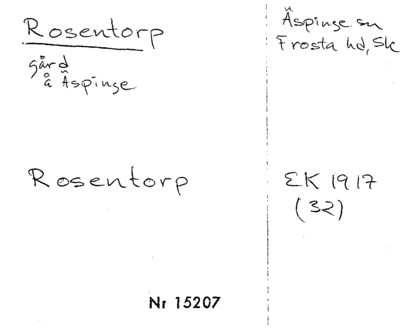 Rosentorp
gård
å Äspinge
Rosentorp
Nr 15207
Äspinge sn
Frosta hd, Sk
EK 1917
(32)